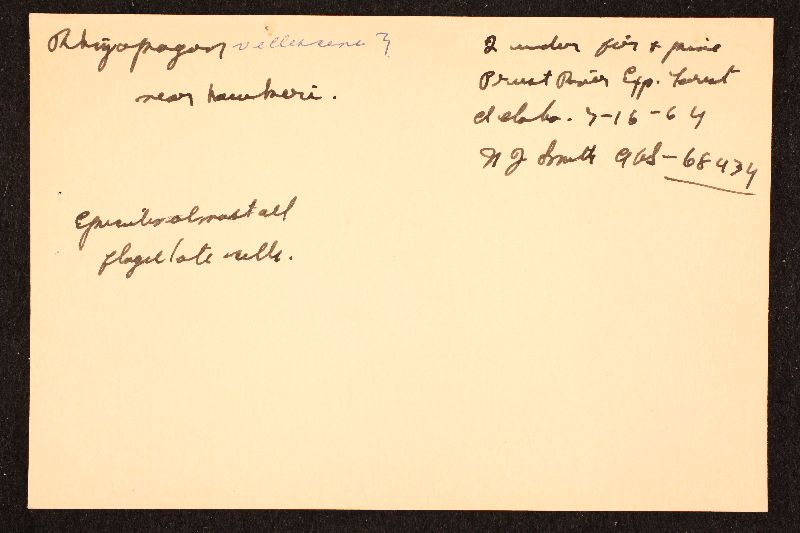 Rhizopogon villescens ?
near hawkeri.
2 under fir & pine
Priest River Exp. Forest
Idaho. 7-16-64
N J Smith AHS-68434
Epicutis almost all
flagellate cells.